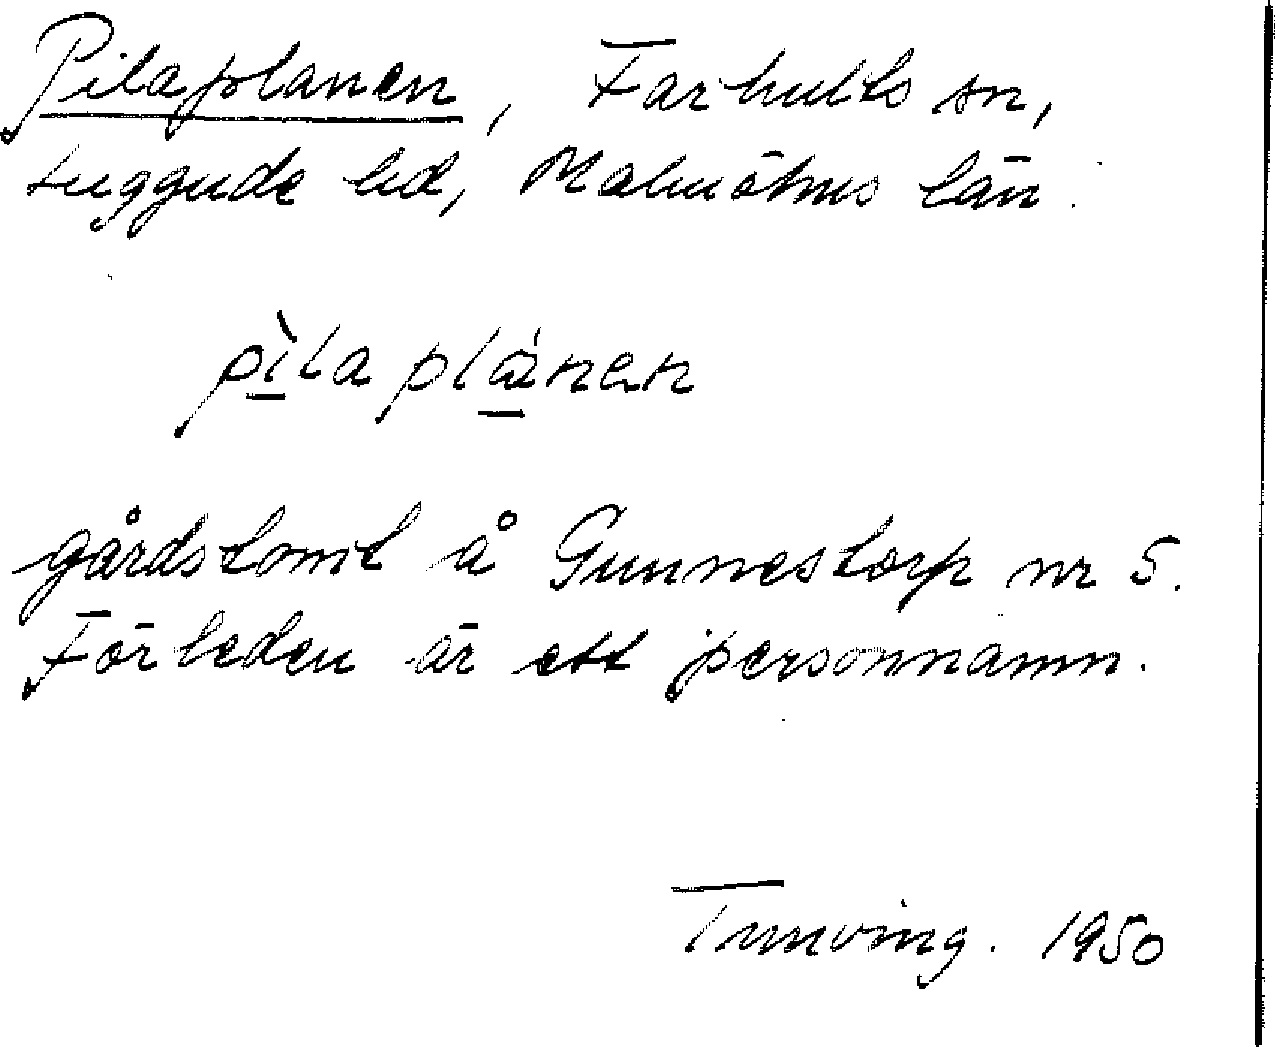 Pilaplanen, Farhults sn,
Luggude hd, Malmöhus län.
pìlaplánen
gårdstomt å Gunnestorp nr 5.
Förleden är ett personnamn.
Tunving. 1950